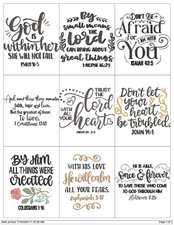 God
is
within her
SHE WILL NOT FALL
PSALM 46:5
By
small means
THE Lord
CAN BRING ABOUT
great things
1 NEPHI 16:29
Don't Be
Afraid
for I AM WITH
YOU
ISAIAH 43:5
And now these three remain:
faith, hope and love.
But the greatest of these
is love.
1 Corinthians 13:13
TRUST
in
the
Lord
WITH ALL
your
heart
PROVERBS 3:5
Don't let
your
heart
be troubled.
JOHN 14:1
BY HIM
ALL THINGS WERE
created
COLOSSIANS 1:16
WITH HIS LOVE
He will calm
ALL YOUR FEARS.
Zephaniah 3:17
HE IS ABLE,
Once & Forever
TO SAVE THOSE WHO COME
TO GOD THROUGH HIM
Hebrews 7:25
Page 1 of 1